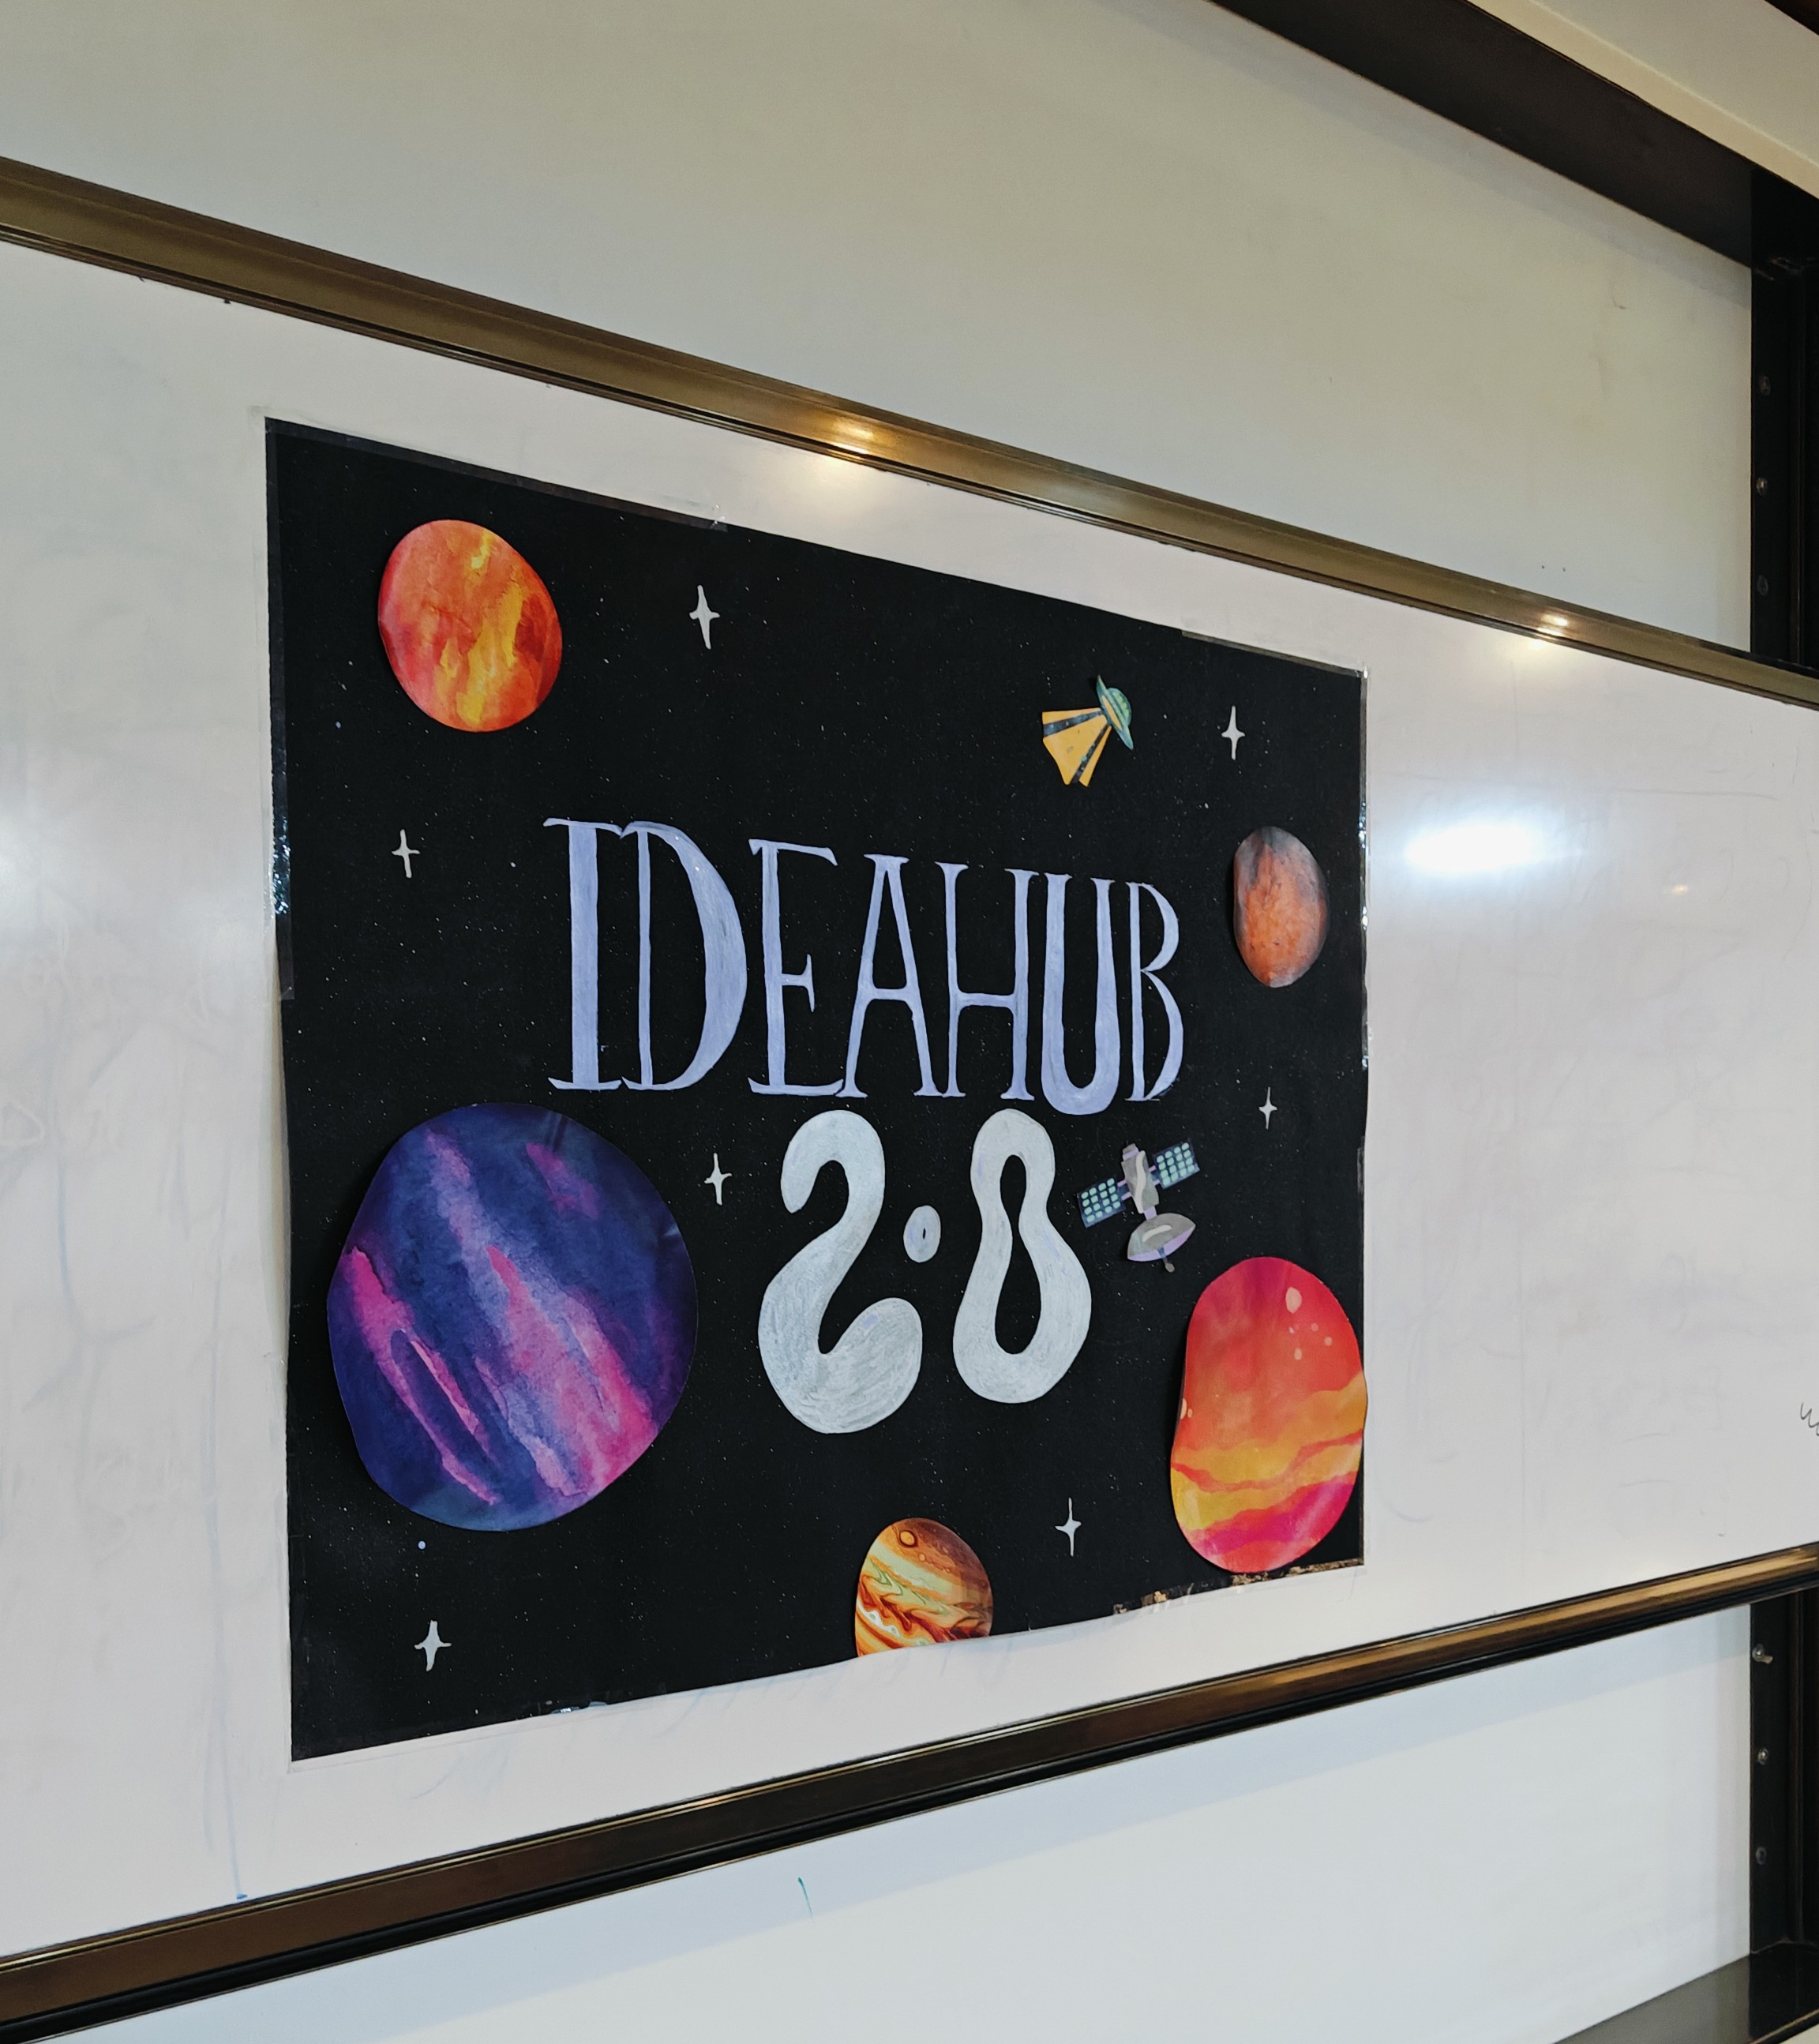 IDEAHUB
2.0